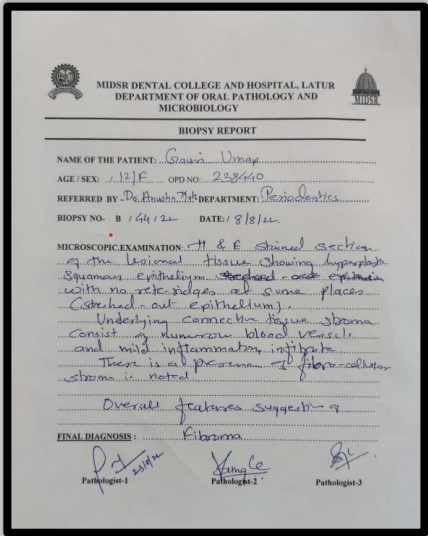 MIDSR DENTAL COLLEGE AND HOSPITAL, LATUR
DEPARTMENT OF ORAL PATHOLOGY AND
MICROBIOLOGY
MIDSR
BIOPSY REPORT
NAME OF THE PATIENT: Gauri Umap
AGE / SEX: 12/F OPD NO: 238440
REFERRED BY - Dr. DEPARTMENT: Periodontics
BIOPSY NO- B / 44 / 22 DATE: / 8/8/22
MICROSCOPIC.EXAMINATION: H & E stained section
of the lesional tissue showing hyperplastic
squamous epithelium
with no rete ridges at some places
(streched-out epithelium).
Underlying connective tissue stroma
consist of numerous blood vessels
and mild inflammatory infiltrate
There is presence of fibro-cellular
stroma is noted
Overall features suggestive
FINAL DIAGNOSIS : Fibroma
Pathologist-1 Pathologist-2 Pathologist-3